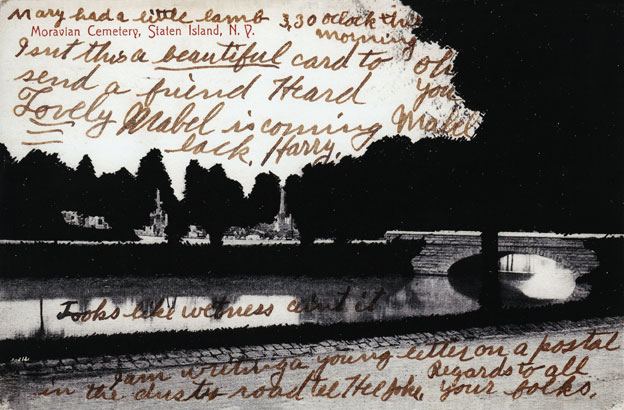 Mary had a little lamb 3,30 oclock this
morning
Moravian Cemetery, Staten Island, N. Y.
Isnt this a beautiful card to
send a friend Heard
Lovely Mabel is coming
back, Harry.
Oh
you
Mabel
Looks like wetness aint it
I am writing a young letter on a postal
in the dusty road Regards to all
your folks.